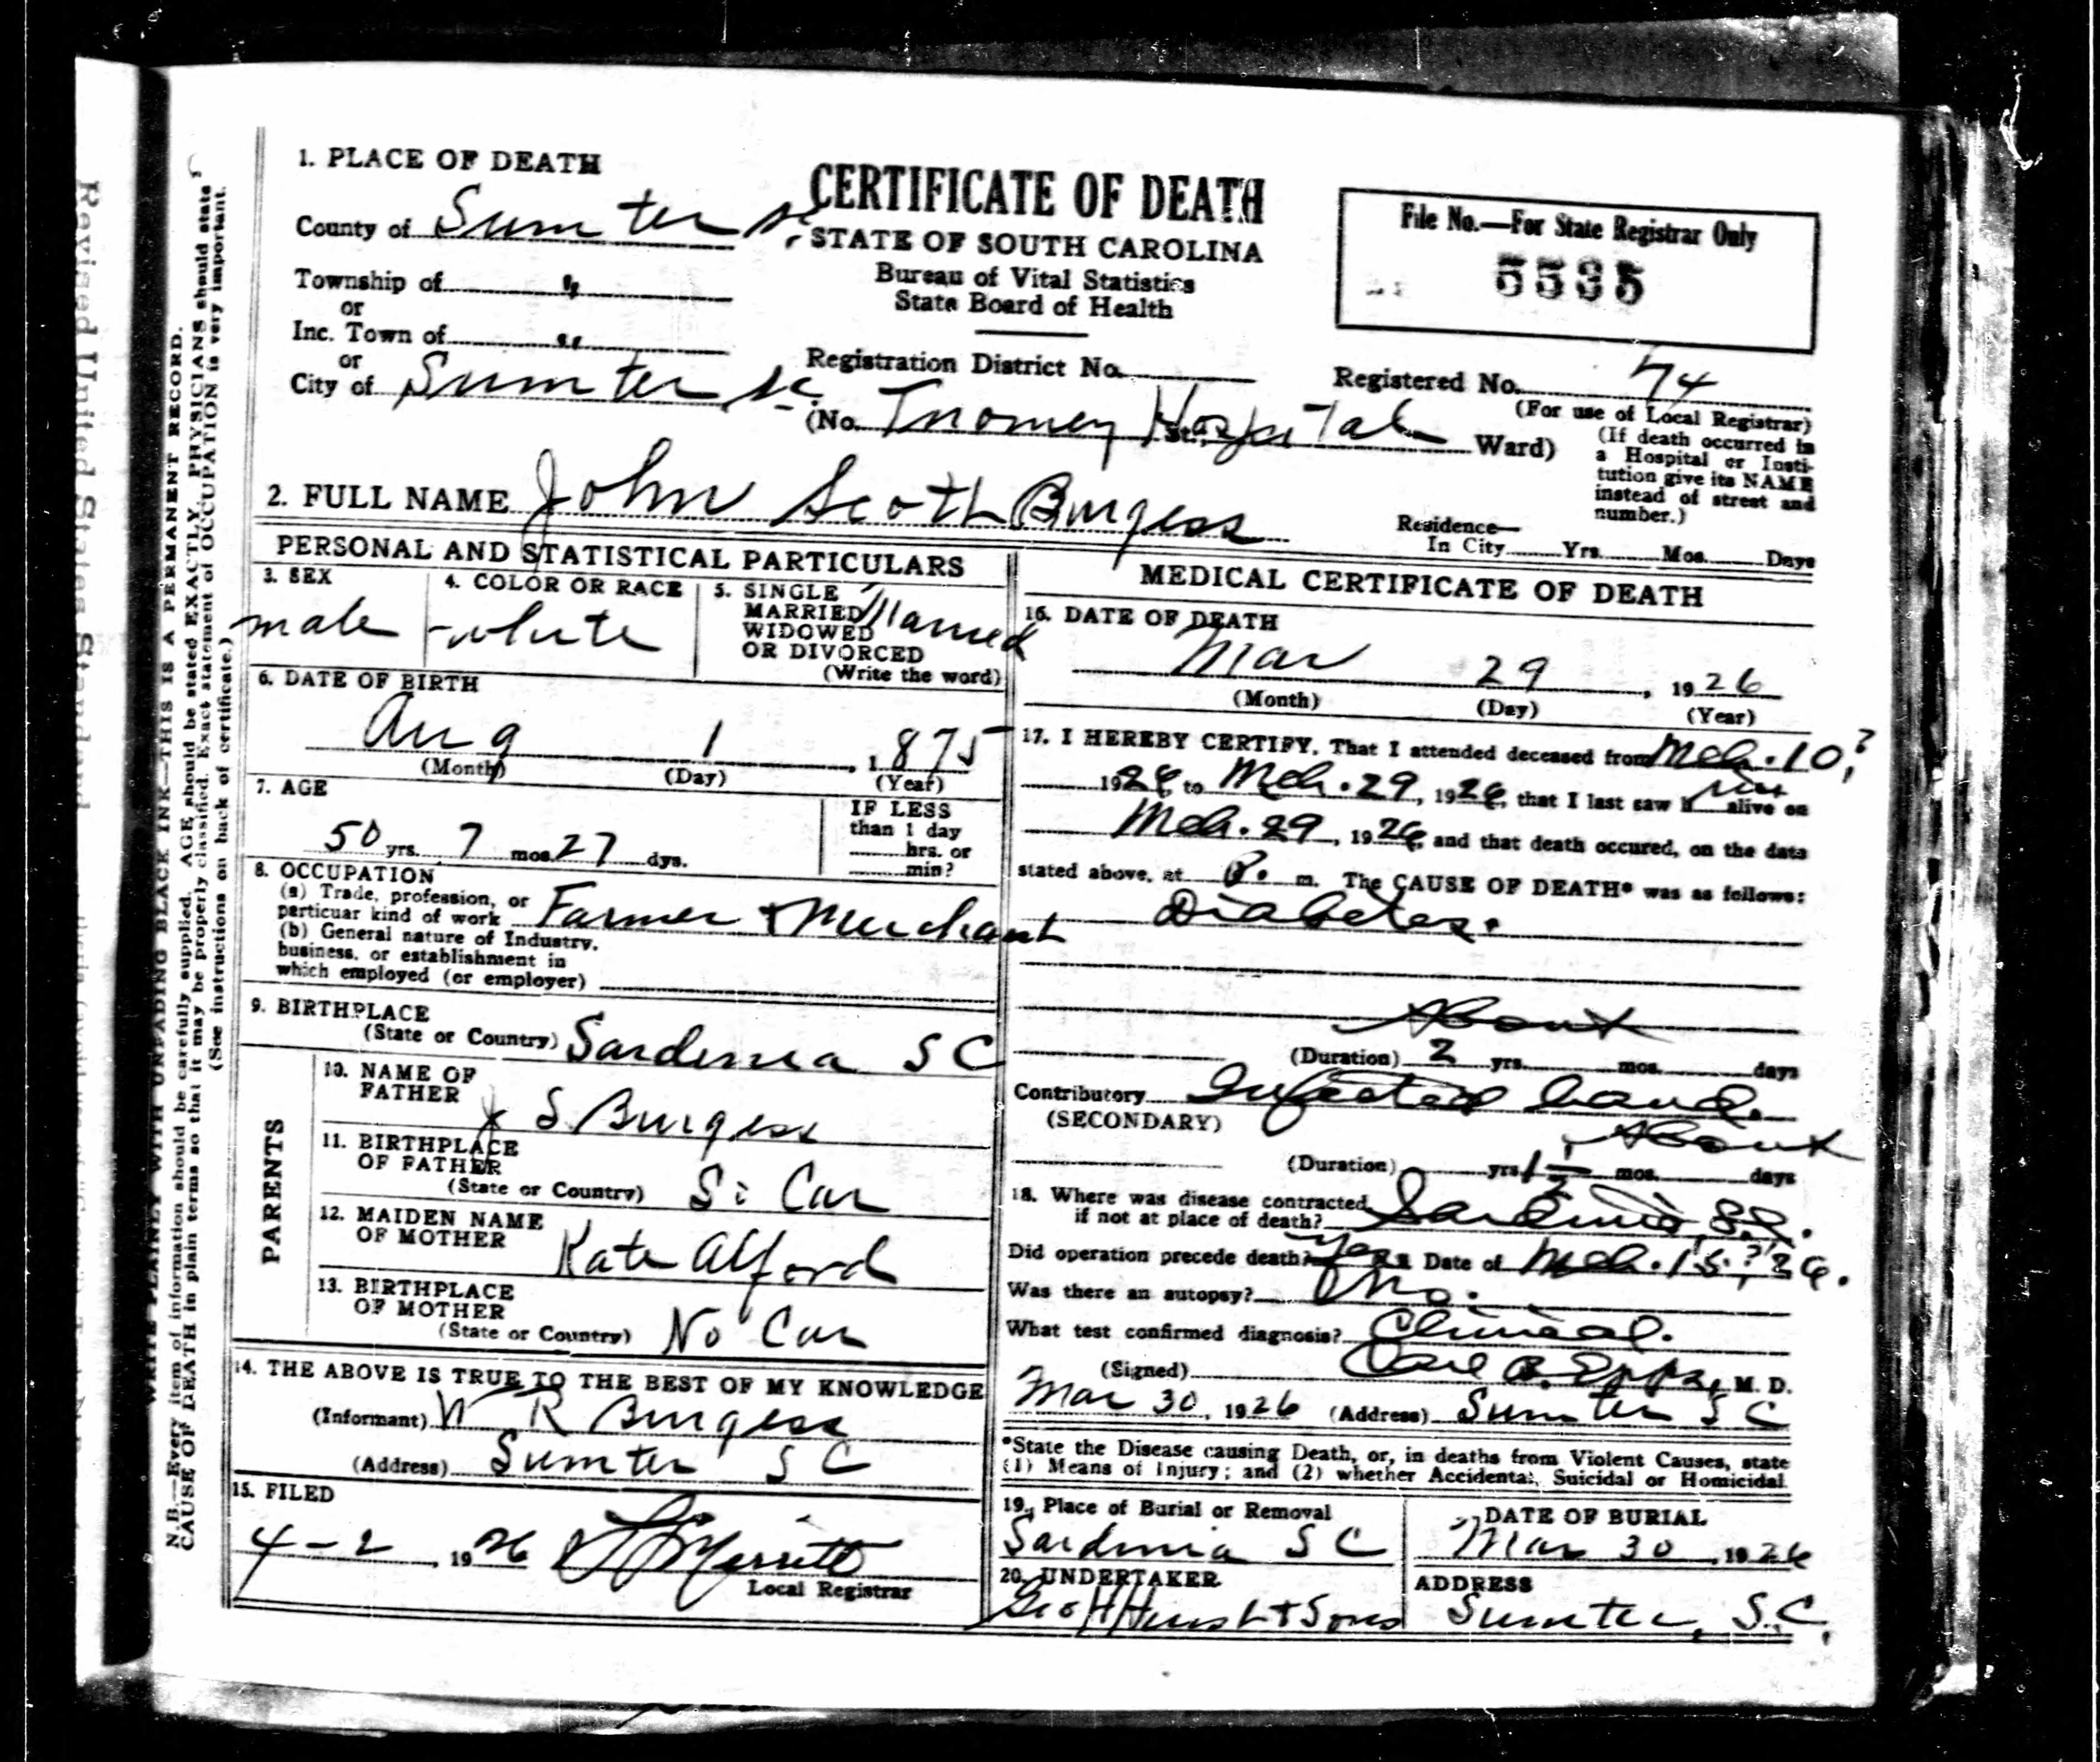 1. PLACE OF DEATH
CERTIFICATE OF DEATH
STATE OF SOUTH CAROLINA
Bureau of Vital Statistics
State Board of Health
File No.—For State Registrar Only
5535
County of Sumter
Township of "
or
Inc. Town of "
or
City of Sumter SC
Registration District No.
Registered No. 74
(For use of Local Registrar)
(No. Tuomey Hospital St., Ward)
(If death occurred in
a Hospital or Insti-
tution give its NAME
instead of street and
number.)
2. FULL NAME John Scott Burgess
Residence—
In City Yrs. Mos. Days
PERSONAL AND STATISTICAL PARTICULARS
3. SEX
male
4. COLOR OR RACE
white
5. SINGLE
MARRIED
WIDOWED
OR DIVORCED
Married
(Write the word)
6. DATE OF BIRTH
Aug 1, 1875
(Month) (Day) (Year)
7. AGE
50 yrs. 7 mos. 27 dys.
IF LESS
than 1 day
hrs. or
min?
8. OCCUPATION
(a) Trade, profession, or
particuar kind of work Farmer + Merchant
(b) General nature of Industry,
business, or establishment in
which employed (or employer)
9. BIRTHPLACE
(State or Country) Sardinia S C
PARENTS
10. NAME OF
FATHER S Burgess
11. BIRTHPLACE
OF FATHER
(State or Country) So Car
12. MAIDEN NAME
OF MOTHER Kate Alford
13. BIRTHPLACE
OF MOTHER
(State or Country) No Car
14. THE ABOVE IS TRUE TO THE BEST OF MY KNOWLEDGE
(Informant) W R Burgess
(Address) Sumter S C
15. FILED
4-2, 1926 Merritt
Local Registrar
MEDICAL CERTIFICATE OF DEATH
16. DATE OF DEATH
Mar 29, 1926
(Month) (Day) (Year)
17. I HEREBY CERTIFY, That I attended deceased from Mch. 10?,
1926 to Mch. 29, 1926, that I last saw him alive on
Mch. 29, 1926, and that death occured, on the data
stated above, at P. m. The CAUSE OF DEATH* was as follows:
Diabetes.
About
(Duration) 2 yrs. mos. days
Contributory Infected hand.
(SECONDARY)
About
(Duration) yrs. mos. days
18. Where was disease contracted
if not at place of death? Sardinia, S.C.
Did operation precede death? Yes. Date of Mch. 15?, 26.
Was there an autopsy? No.
What test confirmed diagnosis? Clinical.
(Signed) Carl B. Epps, M. D.
Mar 30, 1926 (Address) Sumter S C
*State the Disease causing Death, or, in deaths from Violent Causes, state
(1) Means of Injury; and (2) whether Accidental, Suicidal or Homicidal.
19. Place of Burial or Removal
Sardinia S C
DATE OF BURIAL
Mar 30, 1926
20. UNDERTAKER
Geo H Hurst + Sons
ADDRESS
Sumter, S.C.
WRITE PLAINLY WITH UNFADING BLACK INK—THIS IS A PERMANENT RECORD.
N. B.—Every item of information should be carefully supplied. AGE should be stated EXACTLY. PHYSICIANS should state
CAUSE OF DEATH in plain terms so that it may be properly classified. Exact statement of OCCUPATION is very important.
(See instructions on back of certificate.)
Revised United States Standard